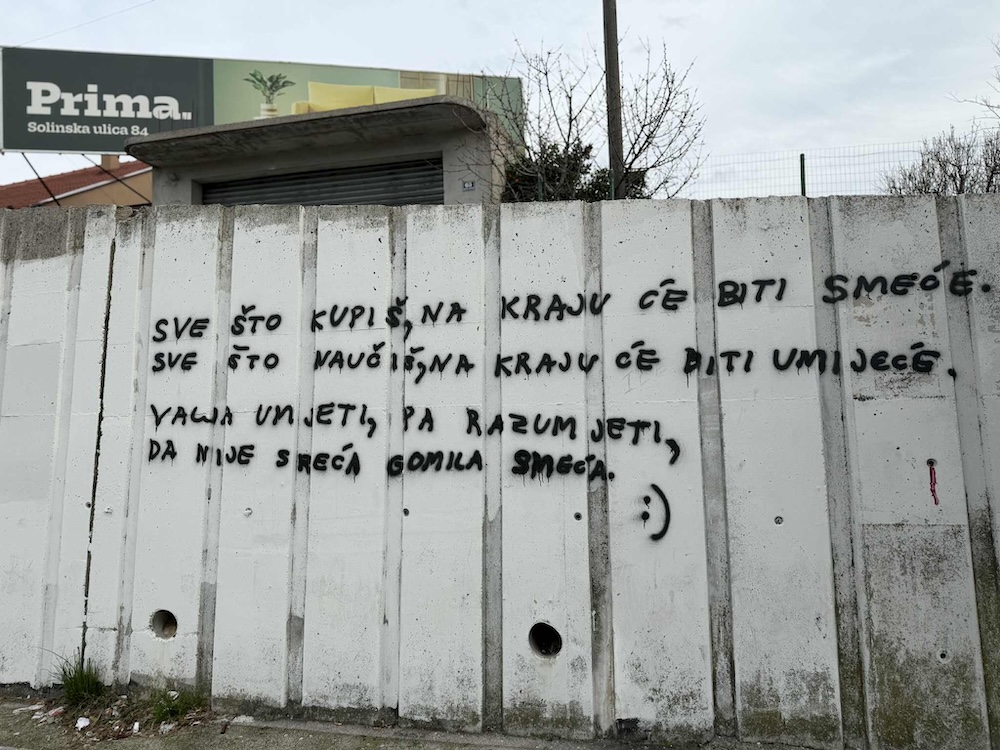 Prima.
Solinska ulica 84
SVE ŠTO KUPIŠ, NA KRAJU ĆE BITI SMEĆE.
SVE ŠTO NAUČIŠ, NA KRAJU ĆE BITI UMIJEĆE.
VALJA UMJETI, PA RAZUMJETI,
DA NIJE SREĆA GOMILA SMEĆA.
:)